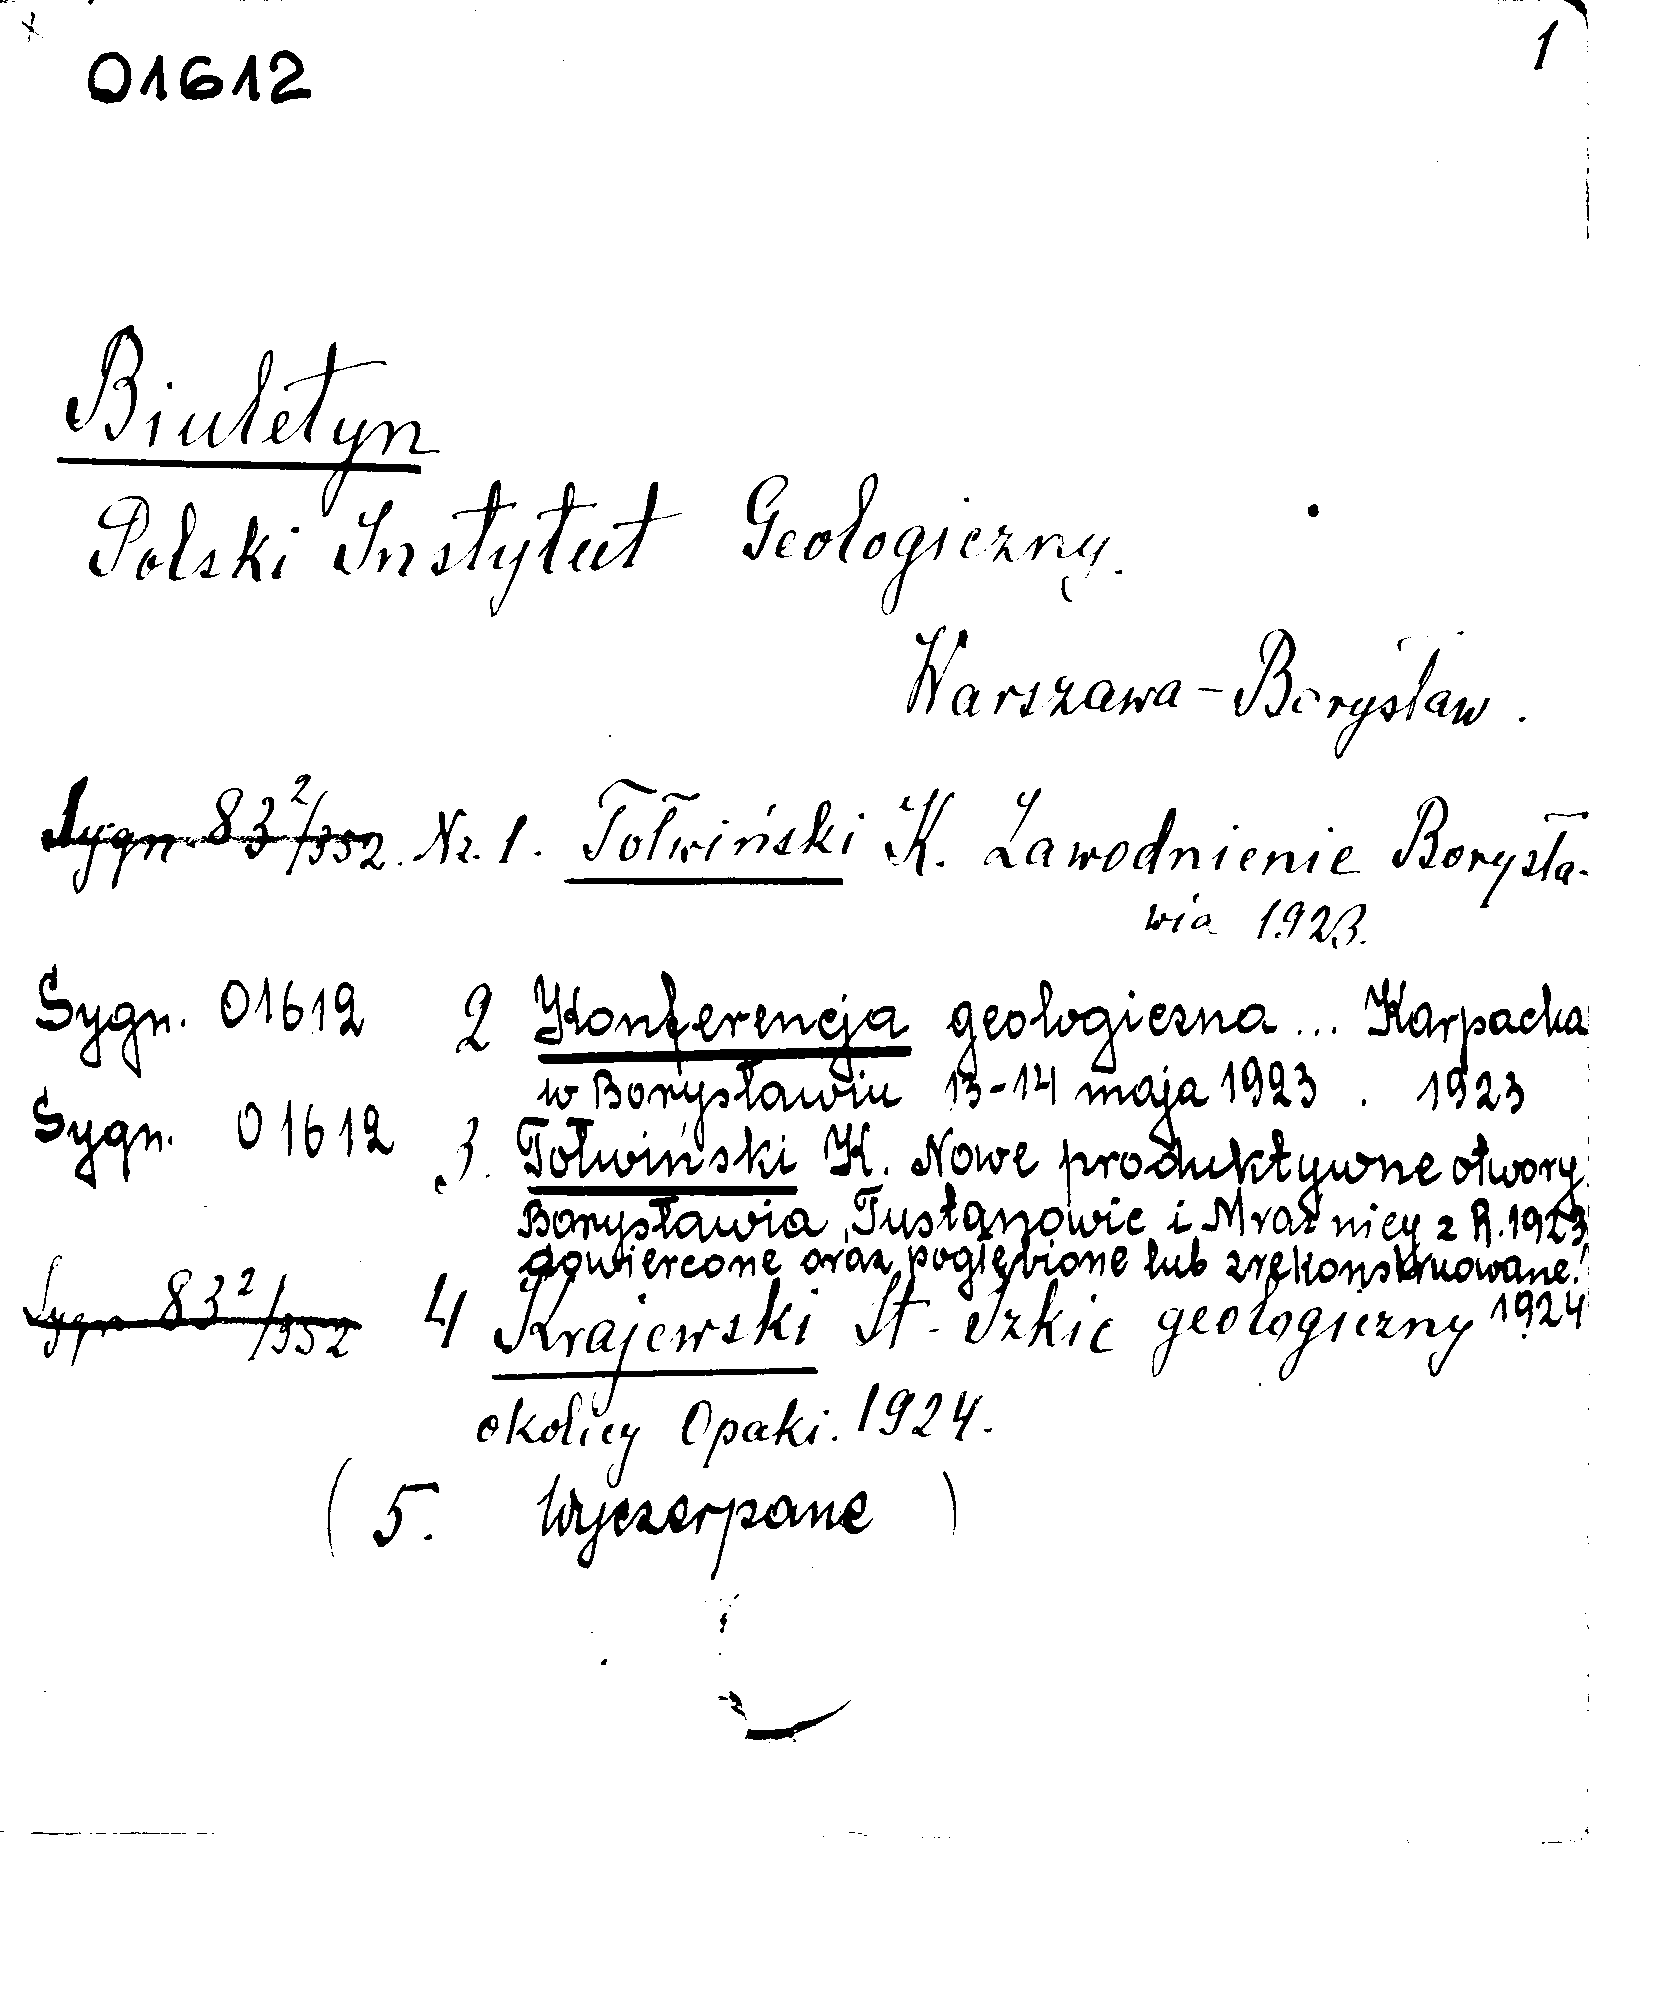 01612
1
Biuletyn
Polski Instytut Geologiczny.
Warszawa - Borysław.
Sygn 83²/352. Nr. 1. Tołwiński K. Zawodnienie Borysła-
wia 1923.
Sygn. 01612 2 Konferencja geologiczna... Karpacka
w Borysławiu 13-14 maja 1923. 1923
Sygn. 01612 3. Tołwiński K. Nowe produktywne otwory
Borysławia, Tustanowic i Mraźnicy z R. 1923
dowiercone oraz pogłębione lub zrekonstruowane.
Sygn 83²/352 4 Krajewski St. Szkic geologiczny 1924
okolicy Opaki. 1924.
(5. Wyczerpane)